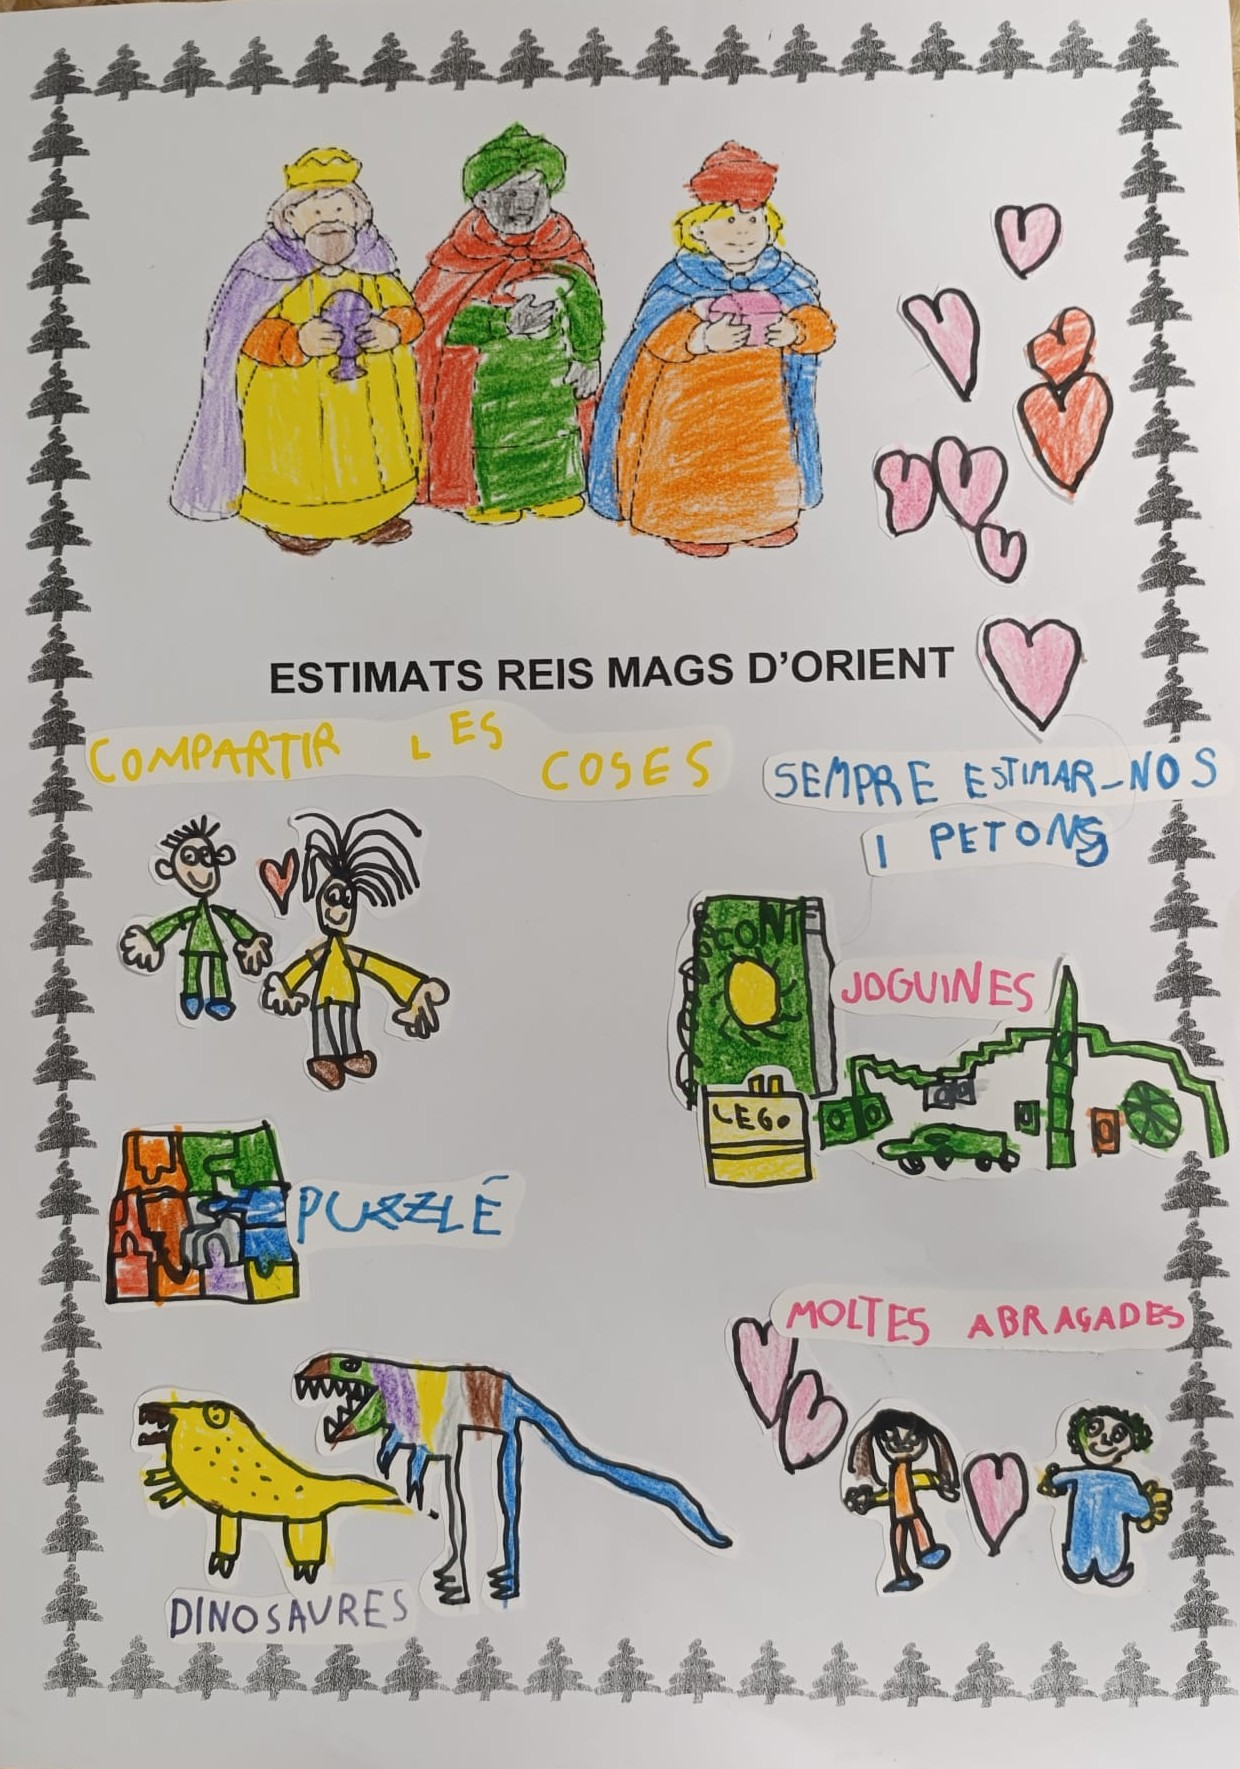 ESTIMATS REIS MAGS D'ORIENT
COMPARTIR LES COSES
SEMPRE ESTIMAR-NOS
I PETONS
CONT
JOGUINES
LEGO
PUZZLE
MOLTES ABRAÇADES
DINOSAURES